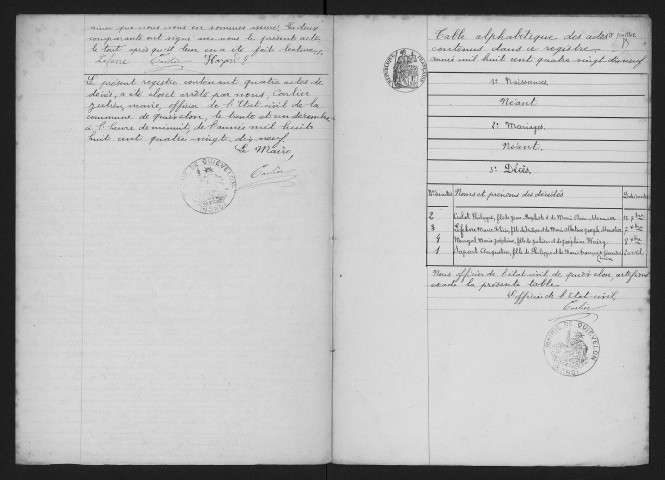 ainsi que nous nous en sommes assuré. Les deux
comparants ont signé avec nous le présent acte,
le tout après qu'il leur en a été fait lecture.
Lefevre Carlier
Le présent registre contenant quatre actes de
décès, a été clos et arrêté par nous, Carlier
maire, officier de l'Etat civil de la
commune de Quiévelon, le trente et un décembre
à l'heure de minuit, de l'année mil huit
cent quatre vingt dix neuf.
Le Maire,
Carlier
MAIRIE DE QUIEVELON
(NORD)
Table alphabétique des actes
contenus dans ce registre
année mil huit cent quatre vingt dix neuf
1º Naissances.
Néant
2º Mariages.
Néant.
3º Décès.
Nºs Noms et prénoms des décédés
2 Culot Philippe, fils de Jean Baptiste et de Marie
3 Lefebvre Marie
4 Marie Joséphine, fille de Julien et de Joséphine
1 Augustin, fils de Philippe et de Marie
Nous officier de l'état civil de quiévelon, certifions
exacte la présente table.
L'officier de l'Etat-civil,
Carlier
MAIRIE DE QUIEVELON
(NORD)